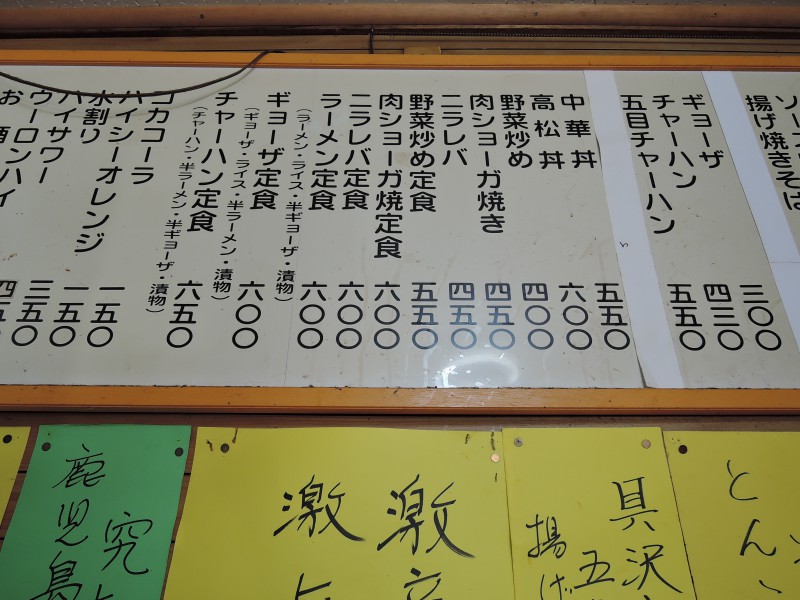 揚げ焼きそば
ギョーザ 三〇〇
チャーハン 四三〇
五目チャーハン 五五〇
中華丼 五五〇
高松丼 六〇〇
野菜炒め 四〇〇
肉ショーガ焼き 四五〇
ニラレバ 四五〇
野菜炒め定食 五五〇
肉ショーガ焼定食 六〇〇
ニラレバ定食 六〇〇
ラーメン定食 六〇〇
(ラーメン・ライス・半ギョーザ・漬物)
ギョーザ定食 六〇〇
(ギョーザ・ライス・半ラーメン・漬物)
チャーハン定食 六五〇
(チャーハン・半ラーメン・半ギョーザ・漬物)
コカコーラ 一五〇
ハイシーオレンジ 一五〇
水割り 三五〇
ハイサワー
ウーロンハイ
お酒
とん
具沢
五
揚げ
激辛
激
究
鹿児島